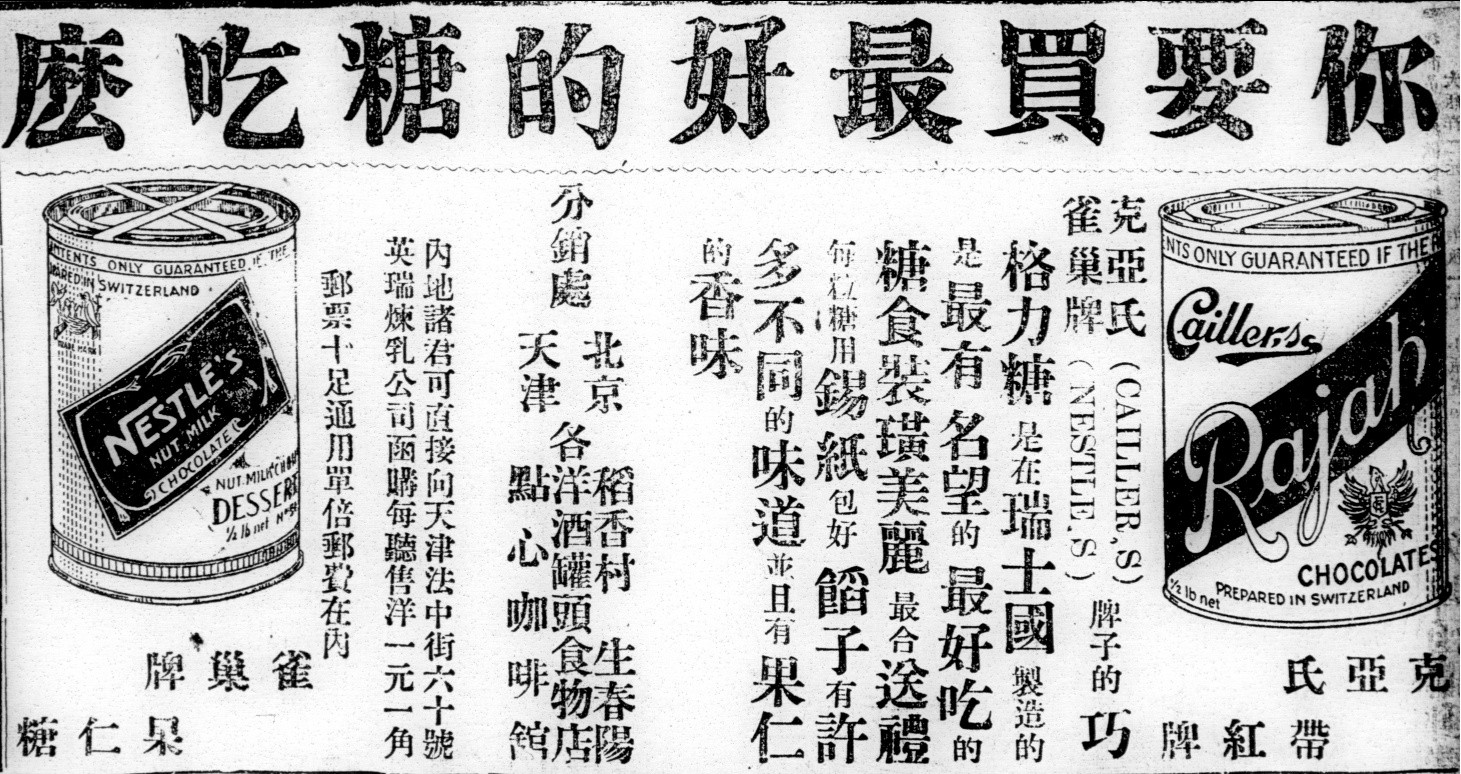 你要買最好的糖吃麼
NTS ONLY GUARANTEED IF THE
Cailler,s
Rajah
CHOCOLATES
½ lb net PREPARED IN SWITZERLAND
克亞氏
帶紅牌
克亞氏(CAILLER,S)
雀巢牌(NESTLE,S)
牌子的巧
格力糖是在瑞士國製造的
是最有名望的最好吃的
糖食裝璜美麗最合送禮
每粒糖用錫紙包好餡子有許
多不同的味道並且有果仁
的香味
分銷處
北京
天津
各
稻香村 生春陽
洋酒罐頭食物店
點心咖啡館
內地諸君可直接向天津法中街六十號
英瑞煉乳公司函購每聽售洋一元一角
郵票十足通用單倍郵費在內
TENTS ONLY GUARANTEED IF THE
ARED IN SWITZERLAND
TRADE MARK
NESTLÉ'S
NUT MILK
CHOCOLATE
NUT MILK CHO
DESSERT
½ lb net
雀巢牌
果仁糖